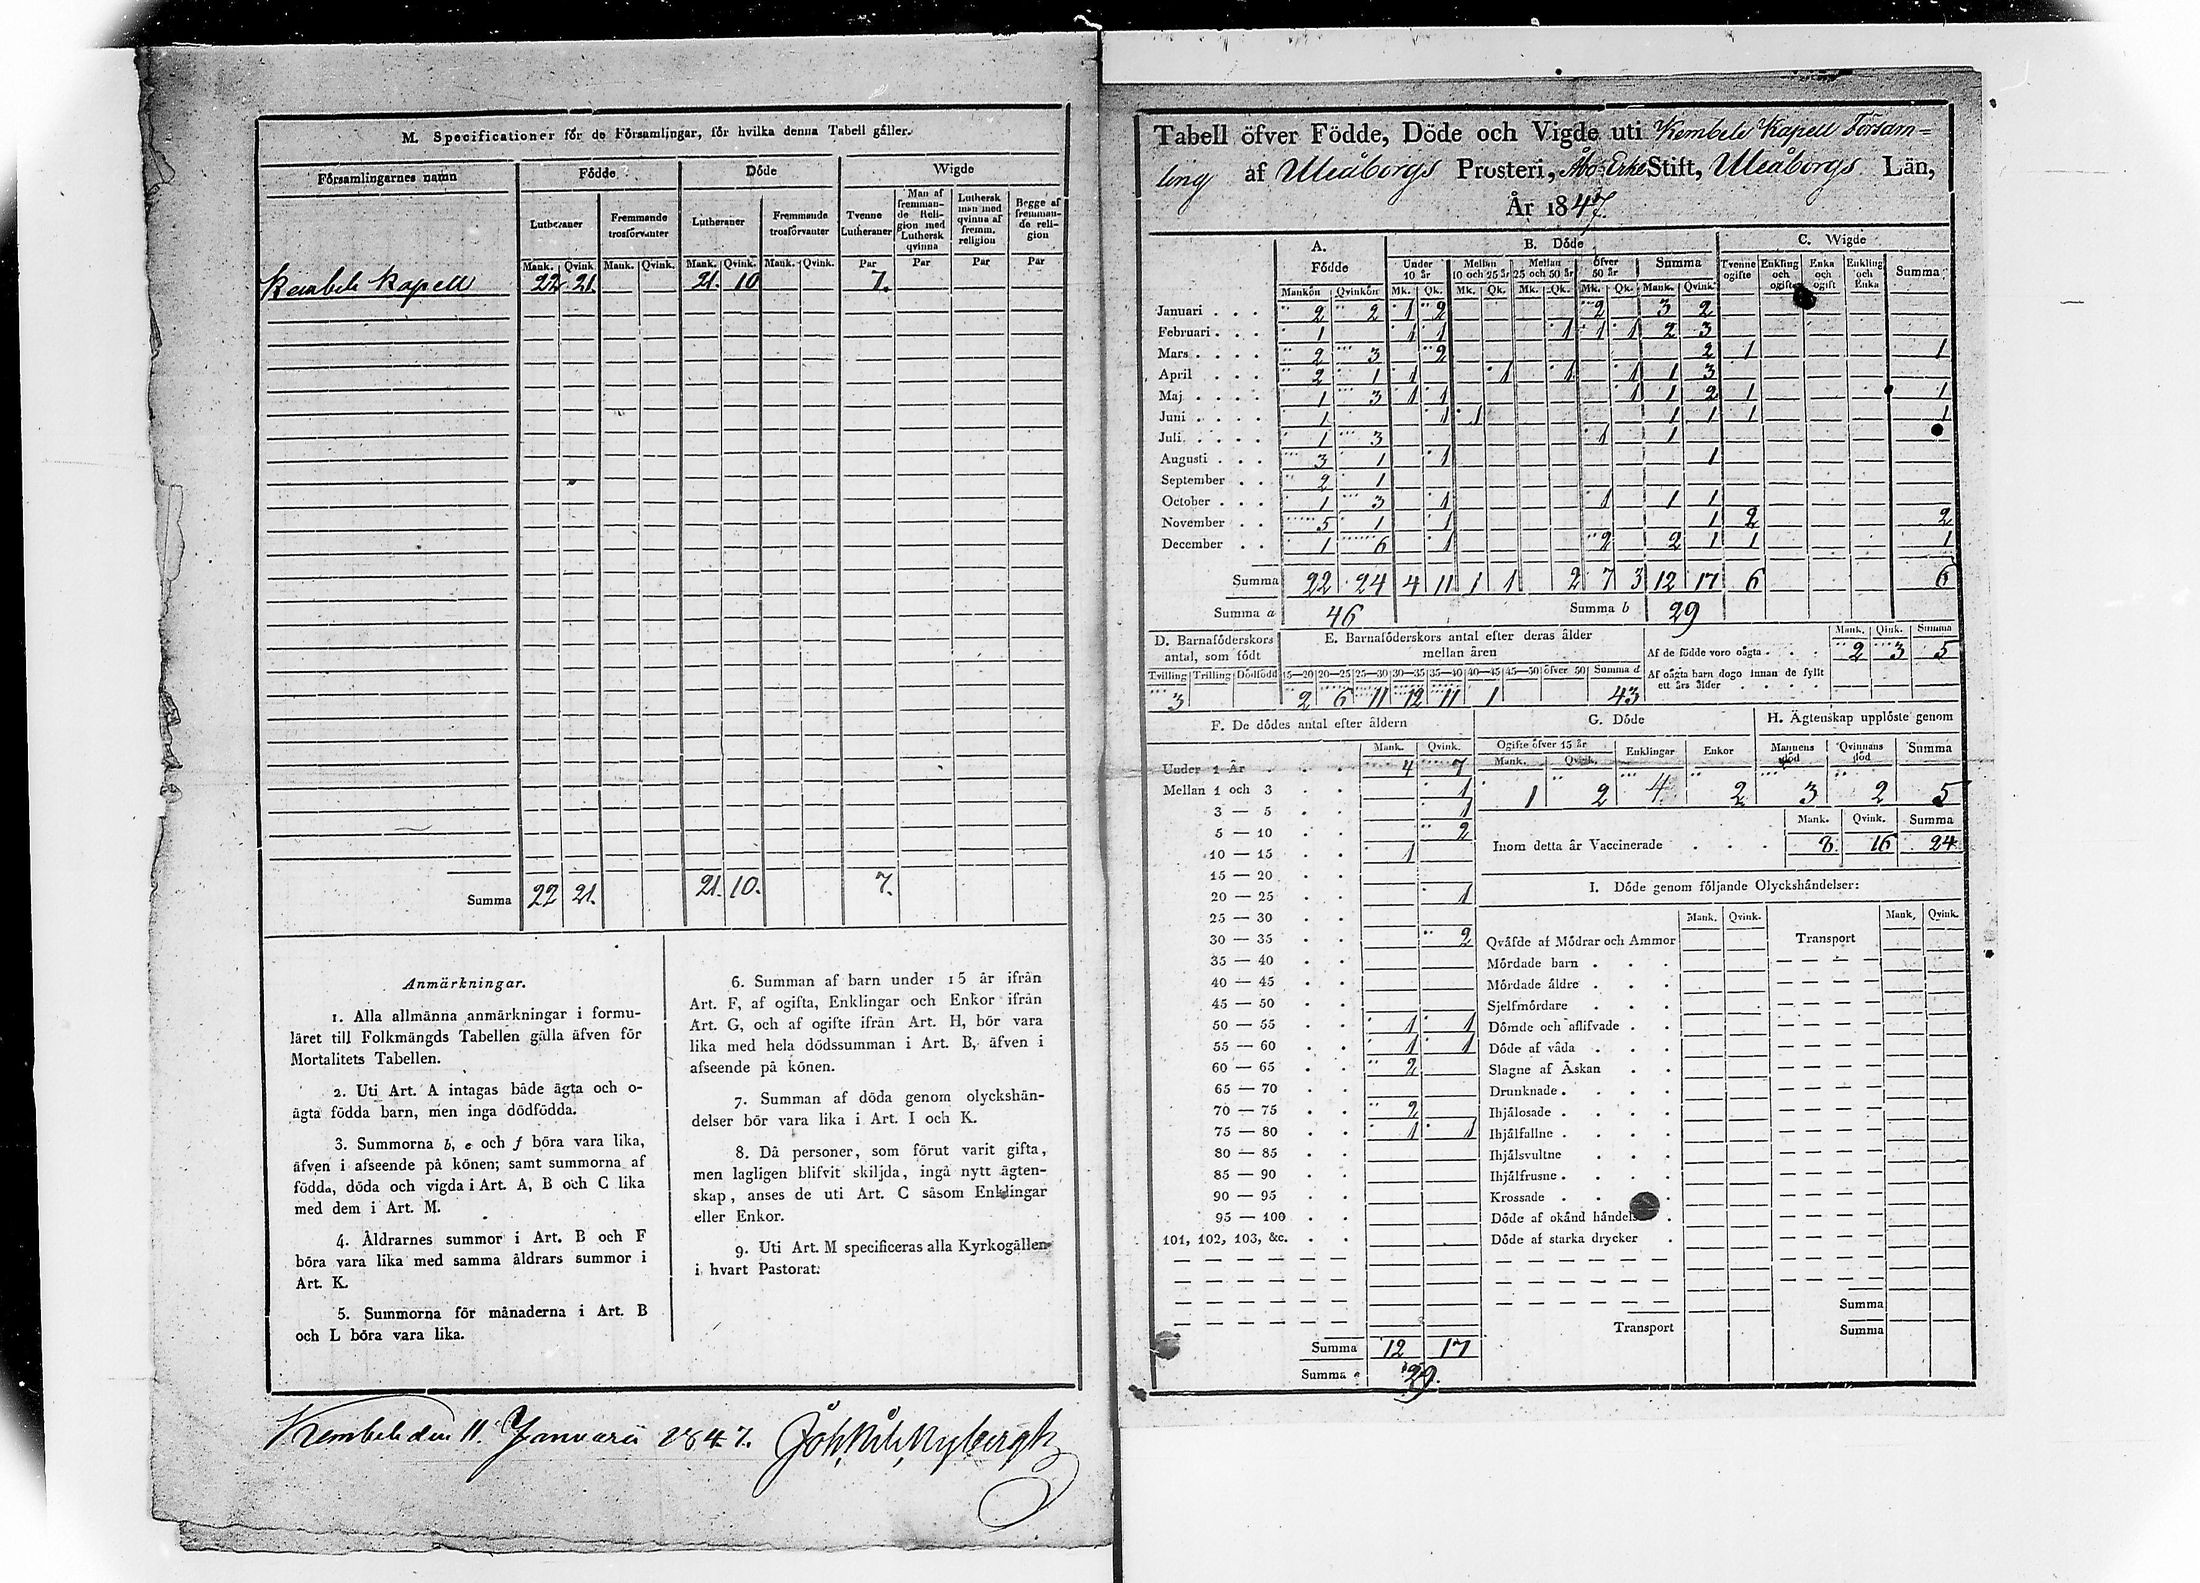 M. Specificationer för de Församlingar, för hvilka denna Tabell gäller.
Församlingarnes namn Födde Döde Wigde
Lutheraner Fremmande trosförvanter Lutheraner Fremmande trosförvanter Tvenne Lutheraner Man af fremmande Religion med Luthersk qvinna Luthersk man med qvinna af fremm. religion Begge af fremmande religion
Mank. Qvink. Mank. Qvink. Mank. Qvink. Mank. Qvink. Par Par Par Par
Kembele Kapell 22 21. 21. 10 7.
Summa 22 21. 21. 10. 7.
Anmärkningar.
1. Alla allmänna anmärkningar i formu-
läret till Folkmängds Tabellen gälla äfven för
Mortalitets Tabellen.
2. Uti Art. A intagas både ägta och o-
ägta födda barn, men inga dödfödda.
3. Summorna b, e och f böra vara lika,
äfven i afseende på könen; samt summorna af
födda, döda och vigda i Art. A, B och C lika
med dem i Art. M.
4. Åldrarnes summor i Art. B och F
böra vara lika med samma åldrars summor i
Art. K.
5. Summorna för månaderna i Art. B
och L böra vara lika.
6. Summan af barn under 15 år ifrån
Art. F, af ogifta, Enklingar och Enkor ifrån
Art. G, och af ogifte ifrån Art. H, bör vara
lika med hela dödssumman i Art. B, äfven i
afseende på könen.
7. Summan af döda genom olyckshän-
delser bör vara lika i Art. I och K.
8. Då personer, som förut varit gifta,
men lagligen blifvit skiljda, ingå nytt ägten-
skap, anses de uti Art. C såsom Enklingar
eller Enkor.
9. Uti Art. M specificeras alla Kyrkogällen
i hvart Pastorat.
Kembele den 11. Januarii 1847. Nybergh
Tabell öfver Födde, Döde och Vigde uti Kembele Kapell Försam=
ling af Uleåborgs Prosteri, Åbo Erke Stift, Uleåborgs Län,
År 1847.
A. Födde B. Döde C. Wigde
Under 10 år Mellan 10 och 25 år Mellan 25 och 50 år öfver 50 år Summa Tvenne ogifte Enkling och ogift Enka och ogift Enkling och Enka Summa
Mankön Qvinkön Mk. Qk. Mk. Qk. Mk. Qk. Mk. Qk. Mank. Qvink.
Januari 2 2 1 2 2 3 2
Februari 1 1 1 1 1 1 2 3
Mars 2 3 2 2 1 1
April 2 1 1 1 1 1 1 3
Maj 1 3 1 1 1 1 2 1 1
Juni 1 1 1 1 1 1 1
Juli 1 3 1 1
Augusti 3 1 1 1
September 2 1
October 1 3 1 1 1 1
November 5 1 1 1 2 2
December 1 6 1 2 2 1 1 1
Summa 22 24 4 11 1 1 2 7 3 12 17 6 6
Summa a 46 Summa b 29
D. Barnaföderskors antal, som födt
Tvilling Trilling Dödfödd
3
E. Barnaföderskors antal efter deras ålder
mellan åren
15—20 20—25 25—30 30—35 35—40 40—45 45—50 öfver 50 Summa d
2 6 11 12 11 1 43
Mank. Qink. Summa
Af de födde voro oägta 2 3 5
Af oägta barn dogo innan de fyllt
ett års ålder
F. De dödes antal efter åldern
Mank. Qvink.
Under 1 År 4 7
Mellan 1 och 3 1
3 — 5 1
5 — 10 2
10 — 15 1
15 — 20
20 — 25 1
25 — 30
30 — 35 2
35 — 40
40 — 45
45 — 50
50 — 55 1 1
55 — 60 1 1
60 — 65 2
65 — 70
70 — 75 2
75 — 80 1 1
80 — 85
85 — 90
90 — 95
95 — 100
101, 102, 103, &c.
Summa 12 17
Summa e 29.
G. Döde
Ogifte öfver 15 år Enklingar Enkor
Mank. Qvink.
1 2 4 2
H. Ägtenskap upplöste genom
Mannens död Qvinnans död Summa
3 2 5
Mank. Qvink. Summa
Inom detta år Vaccinerade 8 16 24
I. Döde genom följande Olyckshändelser:
Mank. Qvink. Mank. Qvink.
Qväfde af Mödrar och Ammor Transport
Mördade barn
Mördade äldre
Sjelfmördare
Dömde och aflifvade
Döde af våda
Slagne af Åskan
Drunknade
Ihjälosade
Ihjälfallne
Ihjälsvultne
Ihjälfrusne
Krossade
Döde af okänd händels
Döde af starka drycker
Summa
Transport Summa